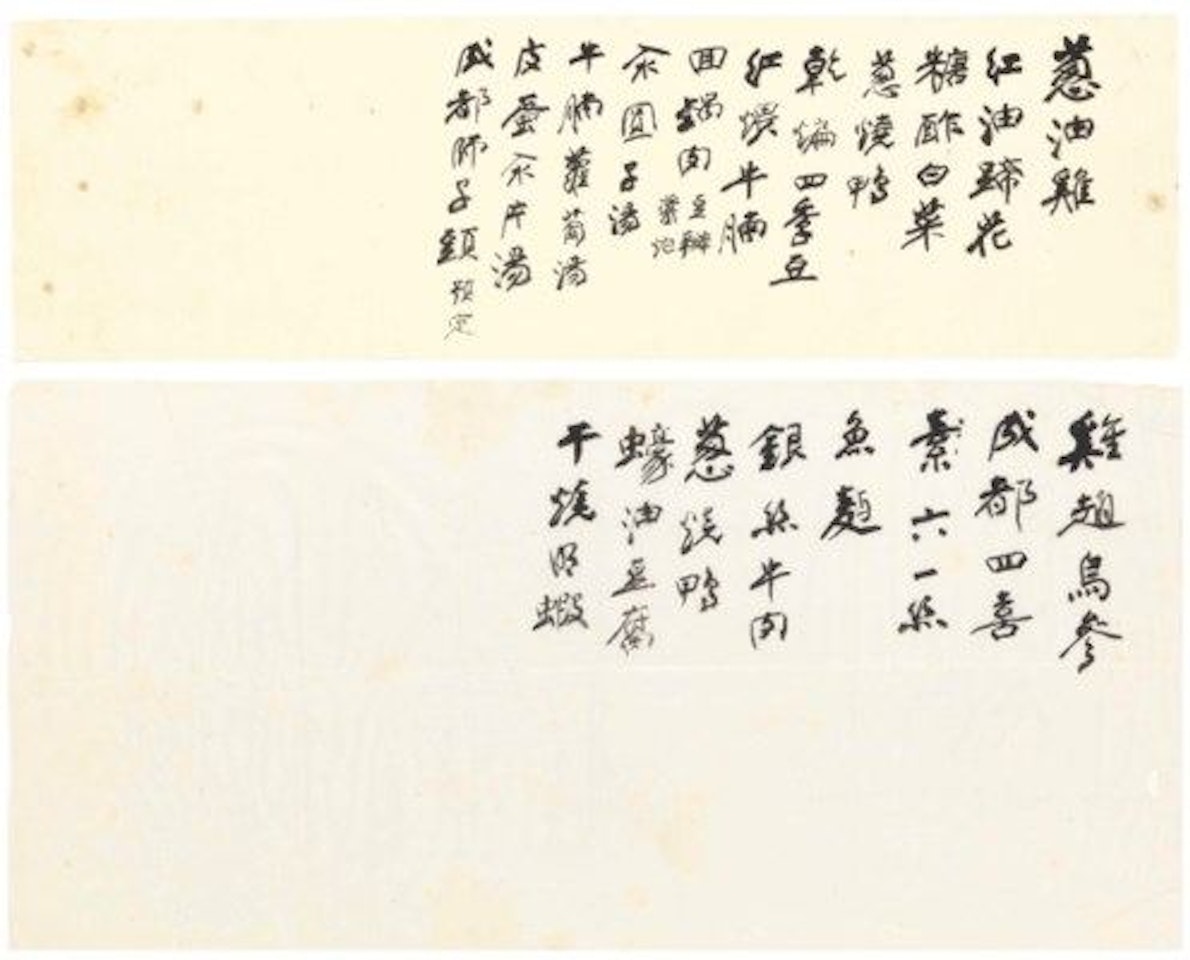 蔥油雞
紅油蹄花
糖酢白菜
蔥燒鴨
乾煸四季豆
紅牛腩
回鍋肉 豆瓣
汆圓子湯
牛腩蘿蔔湯
皮蛋汆片湯
成都師子頭 預定
雞烏參
成都四喜
素六一絲
魚麵
銀絲牛肉
蔥燒鴨
蠔油豆腐
干燒明蝦